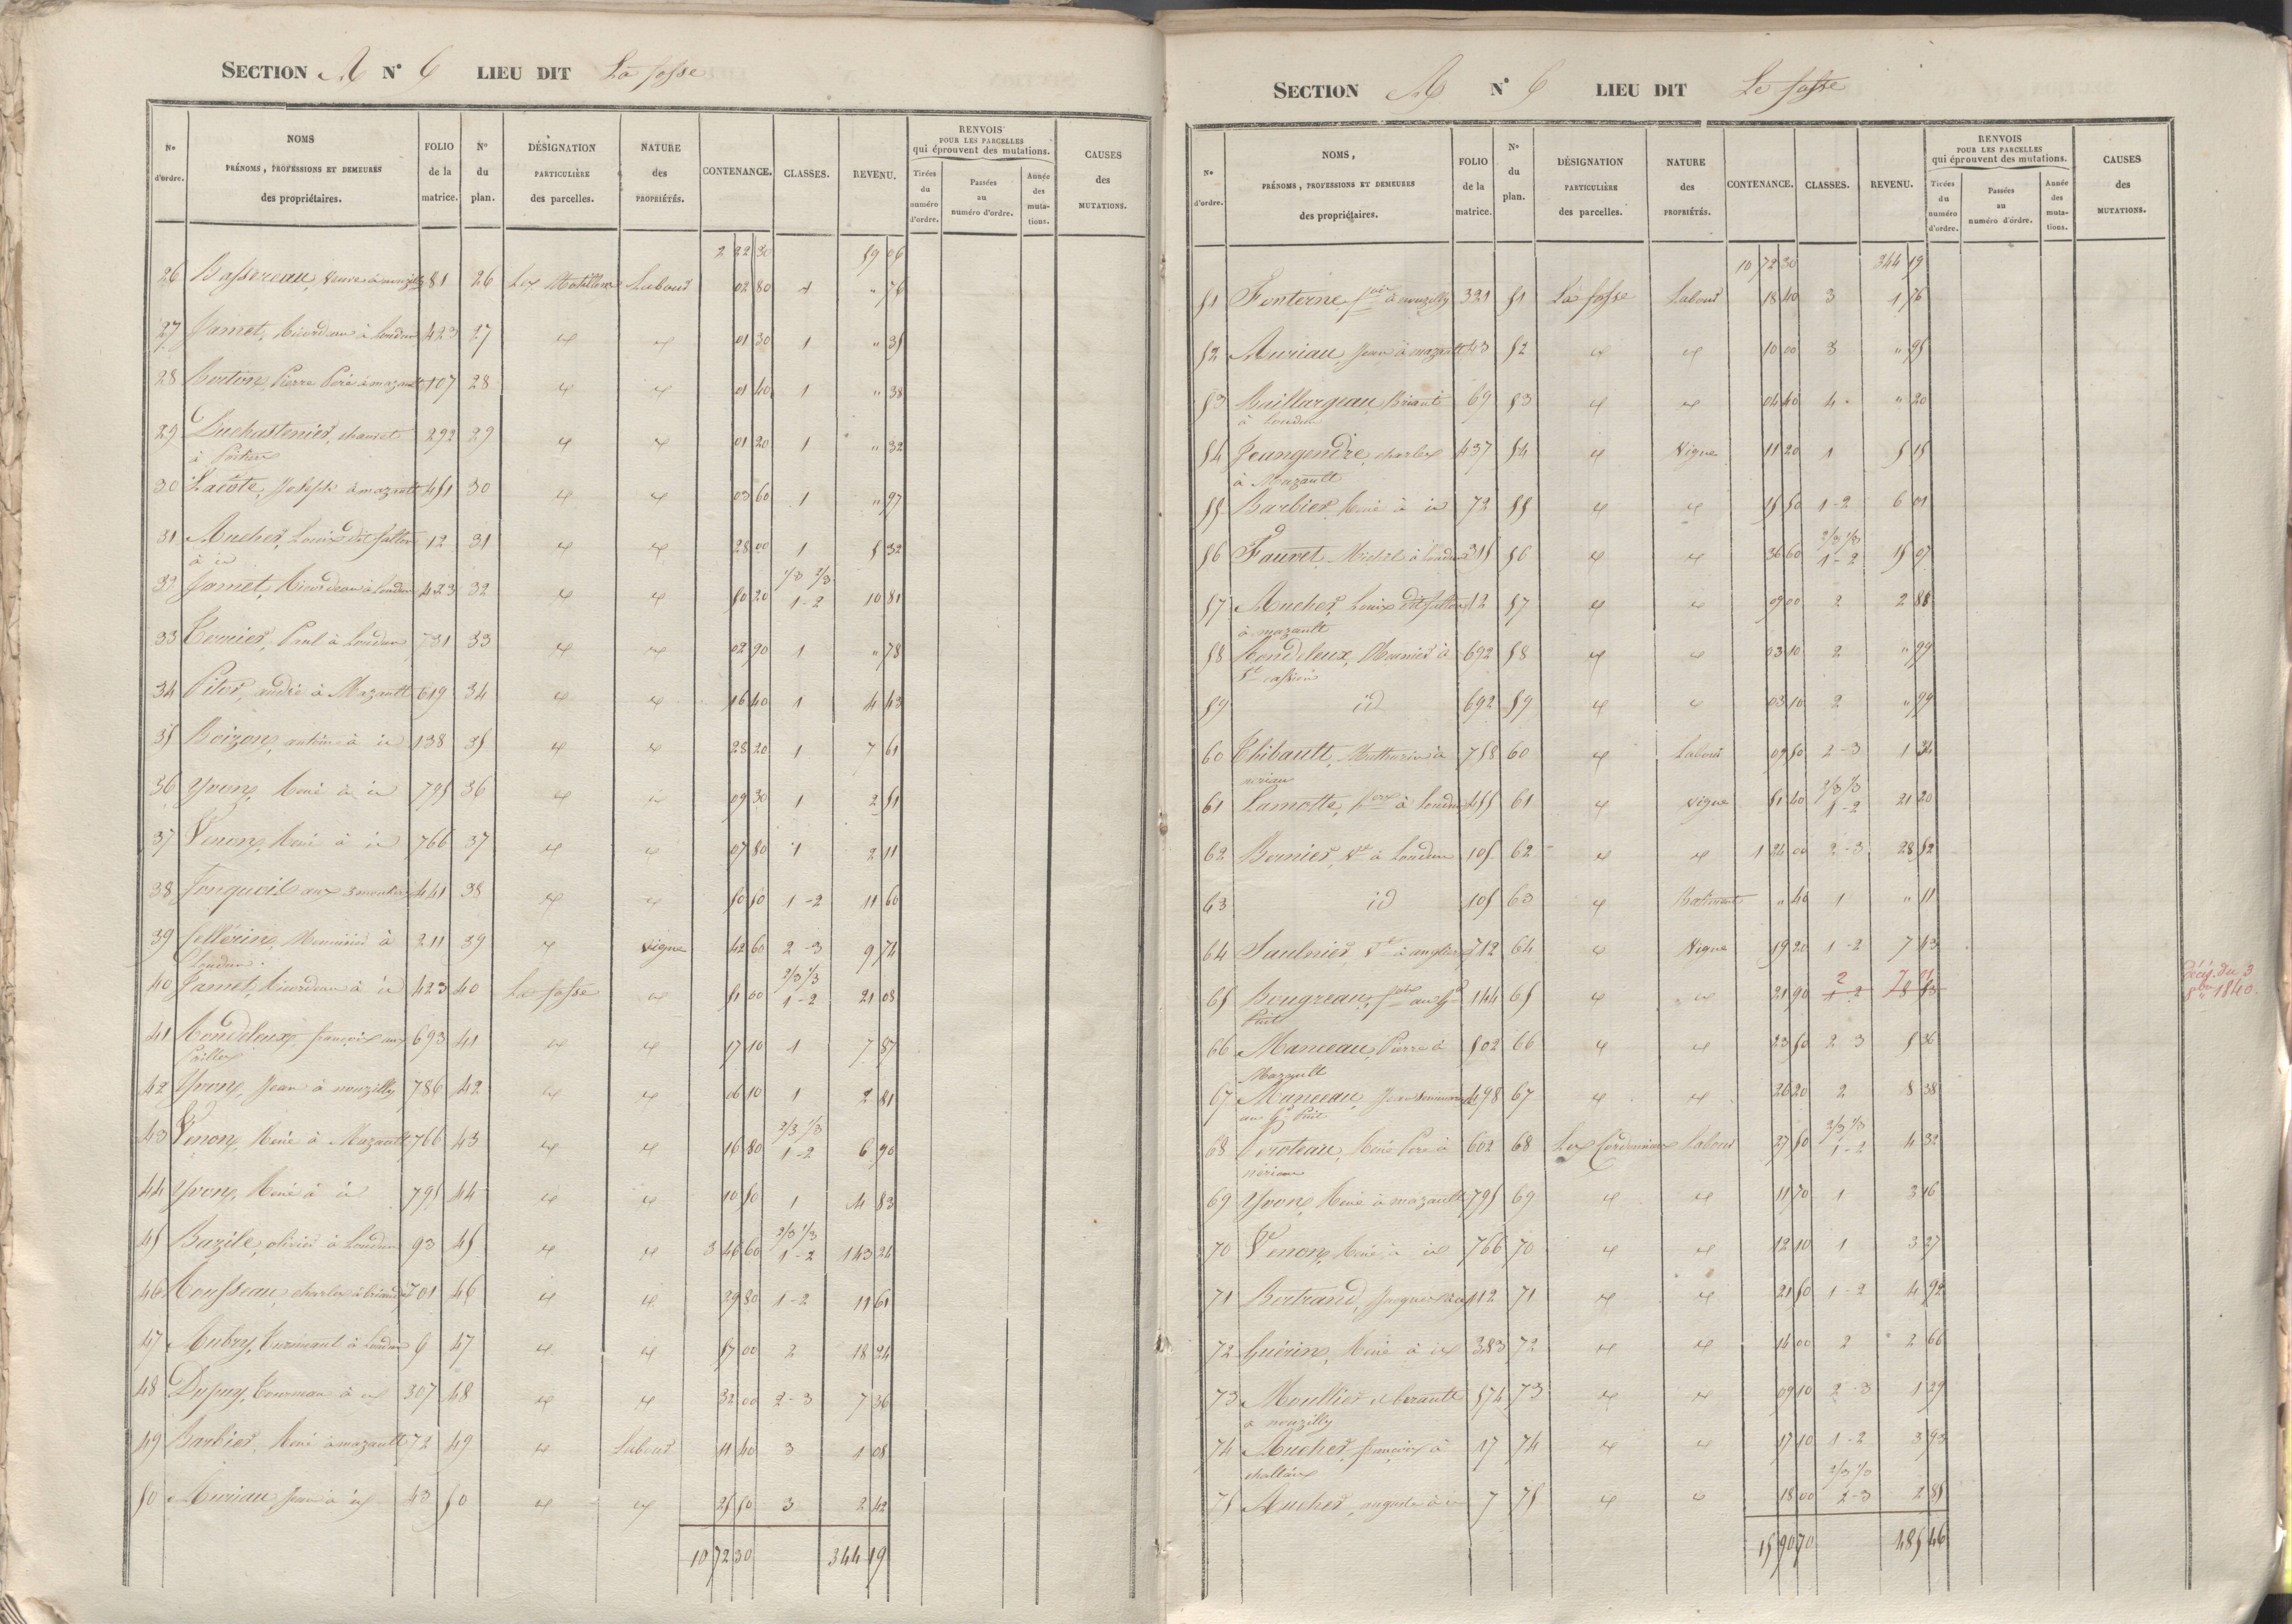 SECTION A N° 6 LIEU DIT La fosse
N° d'ordre. NOMS PRÉNOMS, PROFESSIONS ET DEMEURES des propriétaires. FOLIO de la matrice. N° du plan. DÉSIGNATION PARTICULIÈRE des parcelles. NATURE des PROPRIÉTÉS. CONTENANCE. CLASSES. REVENU. RENVOIS POUR LES PARCELLES qui éprouvent des mutations. Tirées du numéro d'ordre. Passées au numéro d'ordre. Année des mutations. CAUSES des MUTATIONS.
2 22 30 59 06
26 Bassereau, Veuve à nouzilly 81 26 Les Labour 02 80 1 " 76
27 Jamet, Ricordeau à Loudun 423 27 id id 01 30 1 " 35
28 Berton, Pierre Père à mazault 107 28 id id 01 40 1 " 38
29 Duchastenier, chauvet 292 29 id id 01 20 1 " 32
à Poitiers
30 Lacôte, Joseph à mazault 451 30 id id 03 60 1 " 97
31 Aucher, Louis dit 12 31 id id 28 00 1 5 32
à id
1/3 2/3
32 Jamet, Ricordeau à Loudun 423 32 id id 50 20 1-2 10 81
33 Terrier, Paul à Loudun 731 33 id id 02 90 1 " 78
34 Piter, andré à Mazault 619 34 id id 16 40 1 4 43
35 Boizon, antoine à id 138 35 id id 28 20 1 7 61
36 Yvon, René à id 795 36 id id 09 30 1 2 51
37 Venon, René à id 766 37 id id 07 80 1 2 11
38 Jonquois aux 3 moutiers 441 38 id id 50 50 1-2 11 60
39 Cellérin, Menuisier à 211 39 id Vigne 42 60 2-3 9 74
Loudun.
2/3 1/3
40 Jamet, Ricordeau à id 423 40 La fosse id 51 00 1-2 21 08
41 Rondeleux, françois aux 693 41 id id 17 10 1 7 87
42 Yvon, Jean à nouzilly 786 42 id id 06 10 1 2 81
2/3 1/3
43 Venon, René à Mazault 766 43 id id 16 80 1-2 6 90
44 Yvon, René à id 795 44 id id 10 50 1 4 83
2/3 1/3
45 Bazile, olivier à Loudun 93 45 id id 3 46 60 1-2 143 26
46 Rousseau, charles à 701 46 id id 29 80 1-2 11 61
47 Aubry, à Loudun 6 47 id id 57 00 2 18 24
48 Dupuy, Tourneau à id 307 48 id id 32 00 2-3 7 36
49 Barbier, René à mazault 72 49 id Labour 11 40 3 1 08
50 Auriau, Jean à id 43 50 id id 25 50 3 2 42
10 72 30 344 19
SECTION A N° 6 LIEU DIT La fosse
N° d'ordre. NOMS, PRÉNOMS, PROFESSIONS ET DEMEURES des propriétaires. FOLIO de la matrice. N° du plan. DÉSIGNATION PARTICULIÈRE des parcelles. NATURE des PROPRIÉTÉS. CONTENANCE. CLASSES. REVENU. RENVOIS POUR LES PARCELLES qui éprouvent des mutations. Tirées du numéro d'ordre. Passées au numéro d'ordre. Année des mutations. CAUSES des MUTATIONS.
10 72 30 344 19
51 Fonterne, à nouzilly 321 51 La fosse Labour 18 40 3 1 76
52 Auriau, Jean à mazault 43 52 id id 10 00 3 " 95
53 Baillargeau, Briant 69 53 id id 04 40 4 " 20
à Loudun
54 Jeungendre, charles 437 54 id Vigne 11 20 1 5 15
à Mazault
55 Barbier, René à id 72 55 id id 15 50 1-2 6 01
2/3 1/3
56 Fauvet, Michel à Loudun 315 56 id id 36 60 1-2 15 07
57 Aucher, Louis dit 12 57 id id 09 00 2 2 88
à mazault
58 Rondeleux, Meunier à 692 58 id id 03 10 2 " 99
St cassien
59 id 692 59 id id 03 10 2 " 99
60 Thibault, Mathurin à 758 60 id Labour 09 50 2-3 1 34
nériau
2/3 1/3
61 Lamotte, à Loudun 455 61 id Vigne 51 40 1-2 21 20
62 Bernier, Ve à Loudun 105 62 id id 1 24 00 2-3 28 52
63 id 105 63 id Batiment " 40 1 " 11
64 Saulnier, Ve à anglier 712 64 id Vigne 19 20 1-2 7 43
65 Bougreau, au Gd 144 65 id id 21 90 2 1-2 7 01 8 53
Puit
Décis. du 3 8bre 1840.
66 Manceau, Pierre à 502 66 id id 23 50 2 3 5 36
Mazault
67 Manceau, Jean 498 67 id id 26 20 2 8 38
au Gd Puit
2/3 1/3
68 Peroteau, René Père à 602 68 Les Labour 27 50 1-2 4 32
nériau
69 Yvon, René à mazault 795 69 id id 11 70 1 3 16
70 Venon, René à id 766 70 id id 12 10 1 3 27
71 Bertrand, Jacques à id 112 71 id id 21 50 1-2 4 92
72 Guérin, René à id 383 72 id id 14 00 2 2 66
73 Moullier 574 73 id id 09 10 2-3 1 29
à nouzilly
74 Aucher, françois à 17 74 id id 17 10 1-2 3 93
challais
2/3 1/3
75 Aucher, auguste à id 7 75 id id 18 00 2-3 2 85
15 90 70 485 46